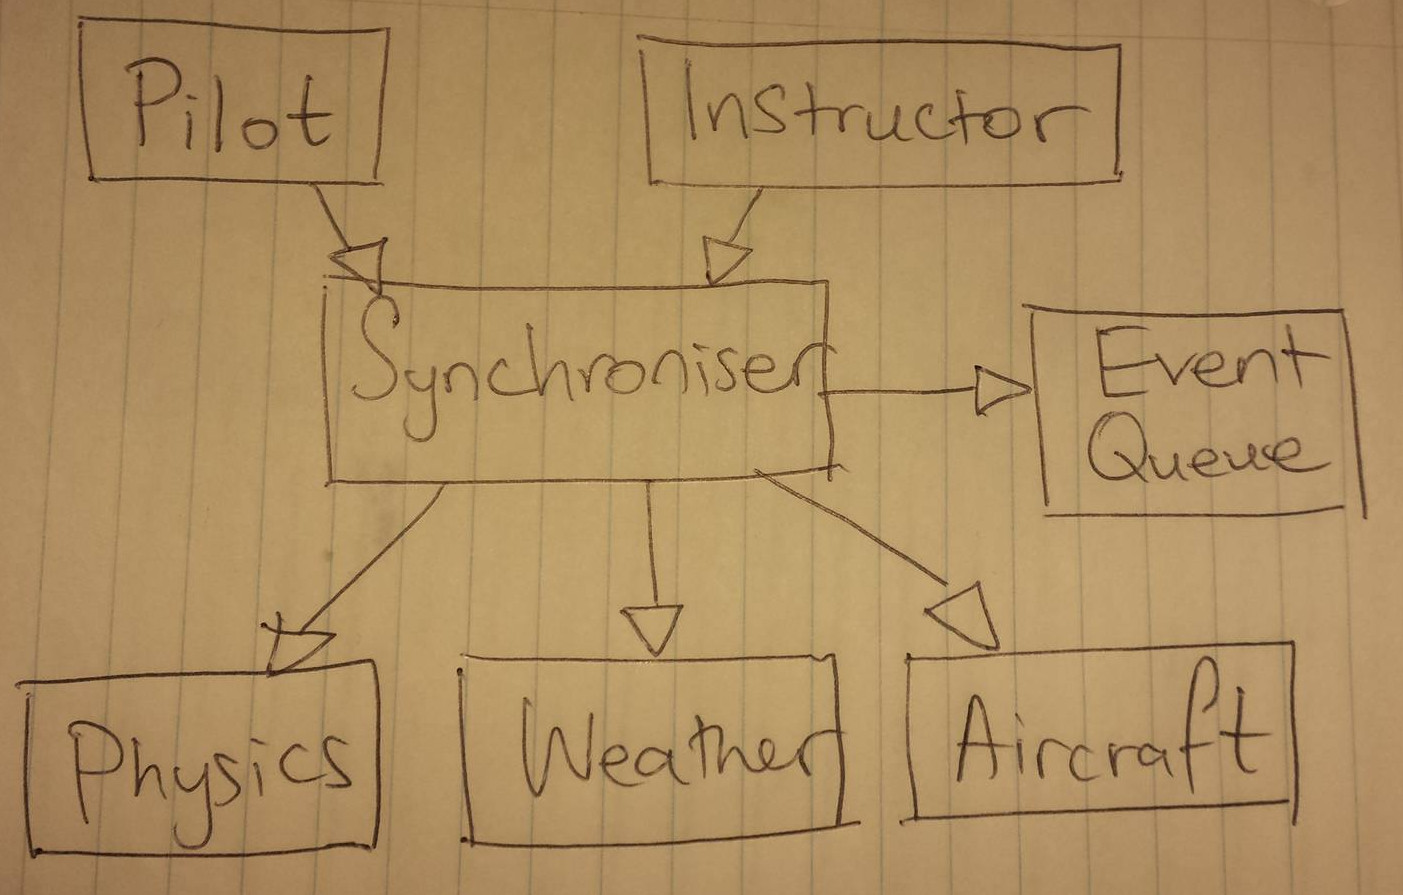 Pilot
Instructor
Synchroniser
Event
Queue
Physics
Weather
Aircraft